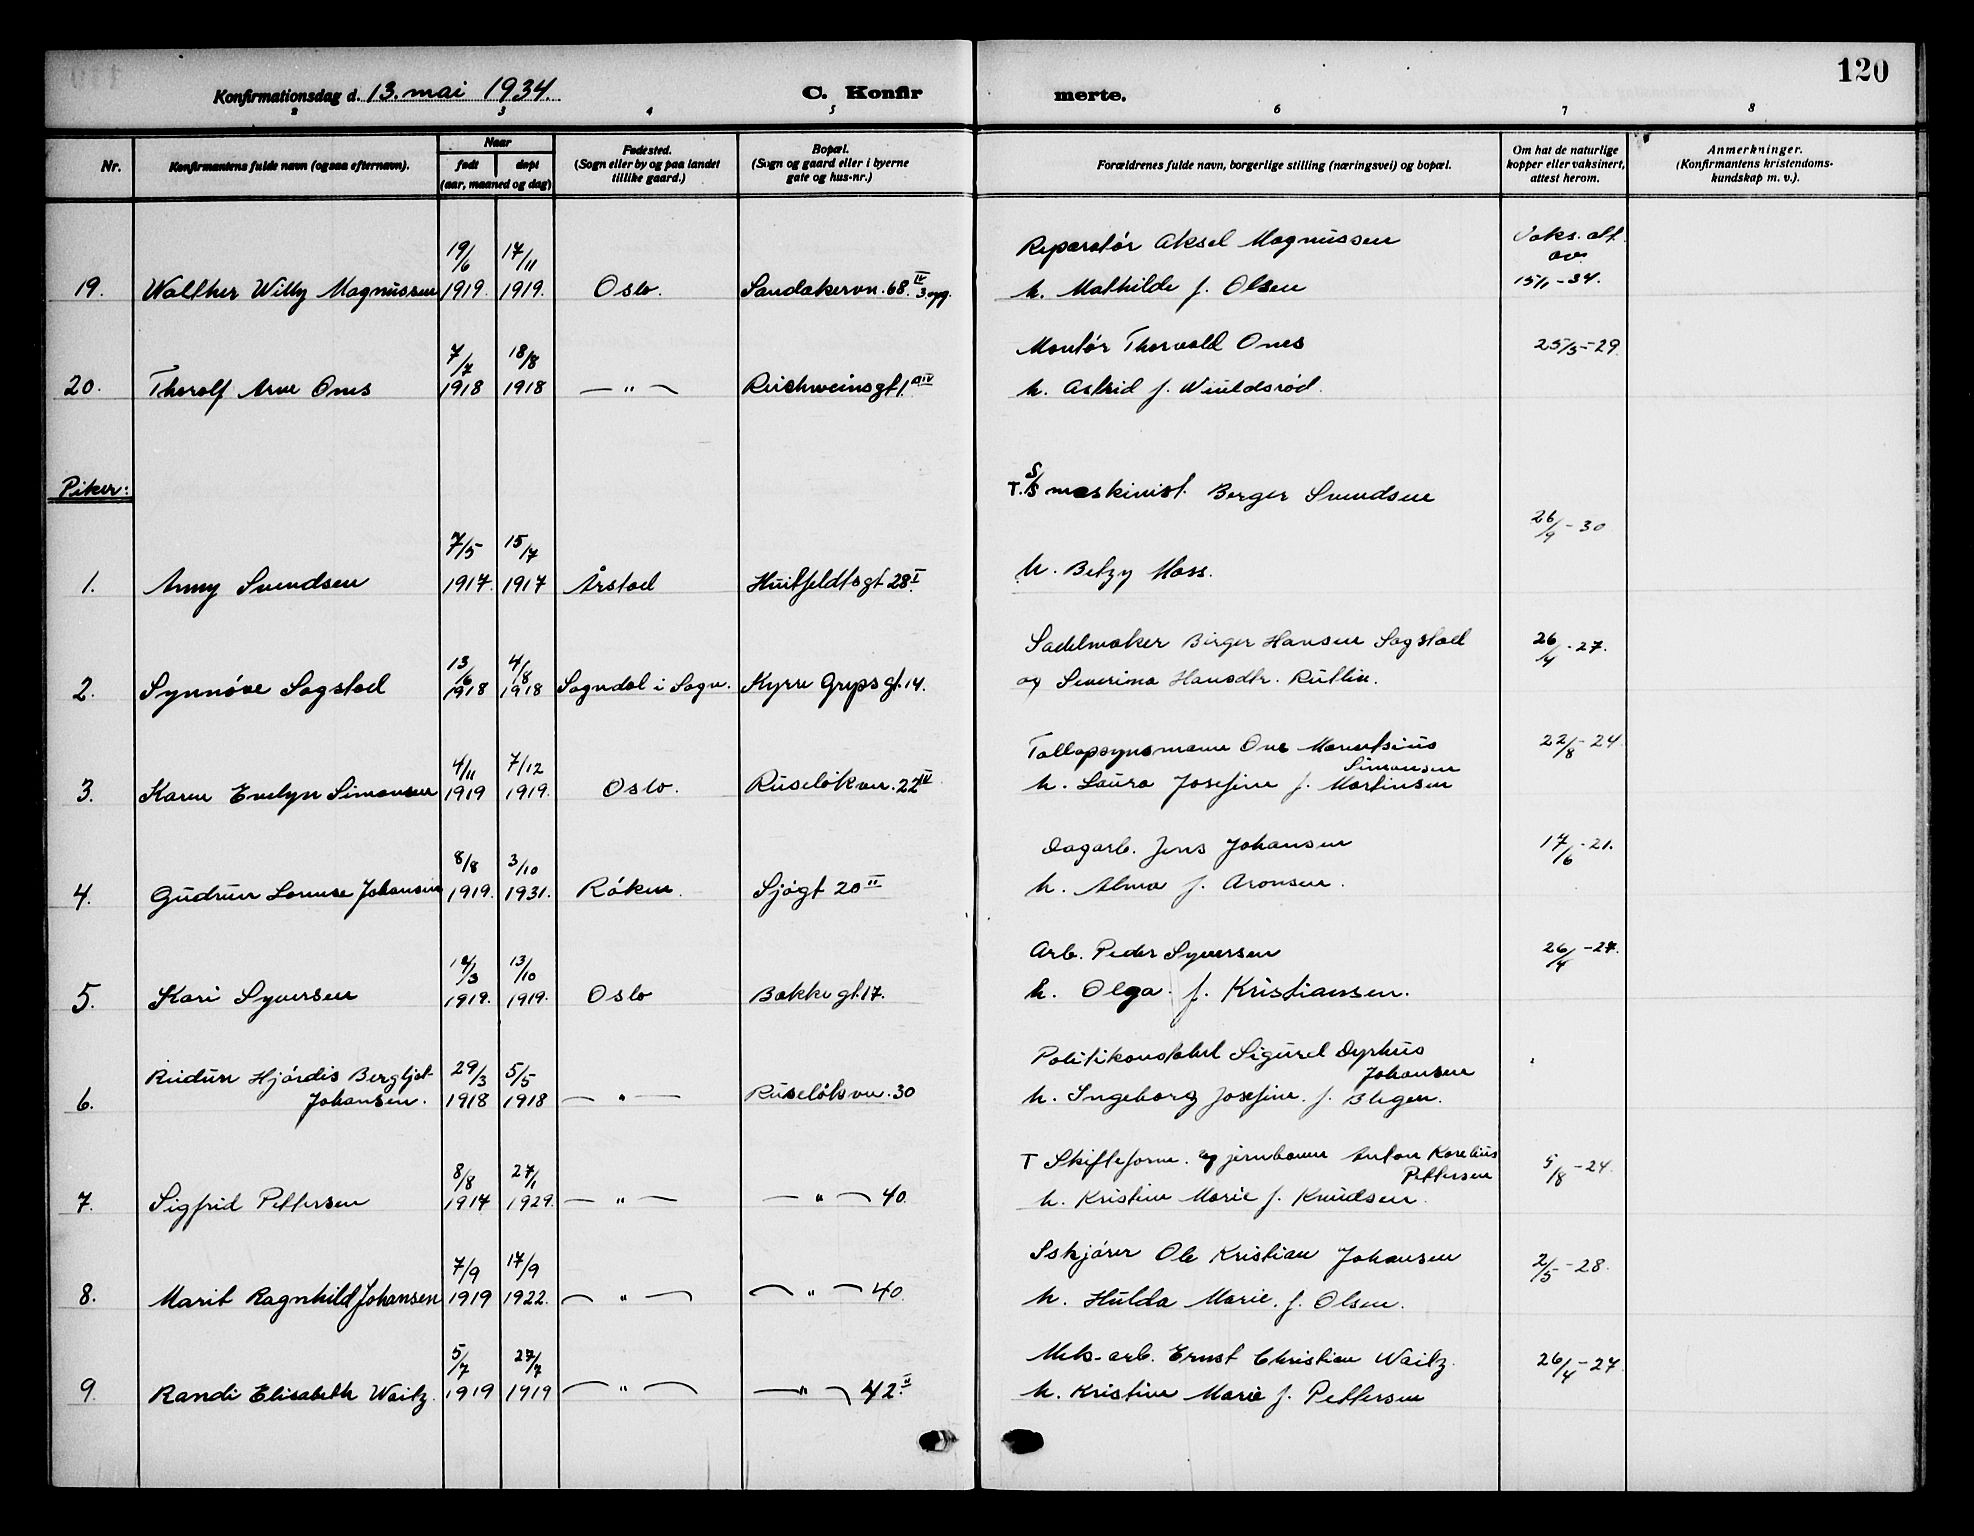 120
Konfirmationsdag d. 13. mai 1934.
C. Konfirmerte.
2 3 4 5 6 7 8
Nr.
Konfirmantens fulde navn (ogsaa efternavn).
Naar
født
døpt
(aar, maaned og dag)
Fødested.
(Sogn eller by og paa landet
tillike gaard.)
Bopæl.
(Sogn og gaard eller i byerne
gate og hus-nr.)
Forældrenes fulde navn, borgerlige stilling (næringsvei) og bopæl.
Om hat de naturlige
kopper eller vaksinert,
attest herom.
Anmerkninger.
(Konfirmantens kristendoms-
kundskap m. v.).
19/6 17/11 Reparatór Aksel Magnussen Vaks. att.
19. Walther Willy Magnussen 1919. 1919. Oslo. Sandakervn. 68. IV 3. opg. h. Mathilde f. Olsen 15/1 - 34.
7/7 18/8 Montór Thorvald Ones 25/5 - 29.
20. Thorolf Arve Ones 1918 1918 — " — Reichweinsgt 1 h. Astrid f.
Piker:
T. S/S maskinist Berger Svendsen
26/9 - 30
7/5 15/7
1. Anny Svendsen 1917. 1917 Årstad Huitfeldtsgt 28 I h. Betzy Moss.
13/6 4/8 Sadelmaker Birger Hansen Sogstad 26/4 - 27.
2. Synnóve Sogstad 1918 1918 Sogndal i Sogn. Kyrre Grepsgt. 14. og Severina Hansdtr. Rutlin.
4/11 7/12 Tollopsynsmann One Marentsius Simonsen 22/8 - 24
3. Karen Evelyn Simonsen 1919 1919. Oslo. Ruselókvn. 22 IV h. Laura Josefine f. Martinsen
8/8 3/10 Dagarb. Jens Johansen 17/6 - 21.
4. Gudrun Lovise Johansen 1919. 1931. Róken. Sjógt 20 II h. Alma f. Aronsen.
13/10 Arb. Peder Syversen 26/4 - 27.
5. Kari Syversen 1919. 1919. Oslo Bakkegt. 17. h. Olga. f. Kristiansen.
29/3 5/5 Politikonstabel Sigurd Dyrhus Johansen
6. Reidun Hjórdis Bergljot Johansen. 1918 1918 — " — Ruselókvn. 30 h. Ingeborg Josefine. f. Blegen.
8/8 27/1 T Skifteform. og jernbanem Anton Karelius Pettersen 5/8 - 24.
7. Sigfrid Pettersen 1917 1929. — " — — " — 40. h. Kristine Marie f. Knudsen.
7/9 17/9 Iskjórer Ole Kristian Johansen 2/5 - 28.
8. Marit Ragnhild Johansen 1919 1922. — " — — " — 40. h. Hulda Marie. f. Olsen.
5/7 27/7 Mek-arb. Ernst Christian Waitz. 26/4 - 27.
9. Randi Elisabeth Waitz. 1919 1919 — " — — " — 42. II h. Kristine Marie f. Pettersen